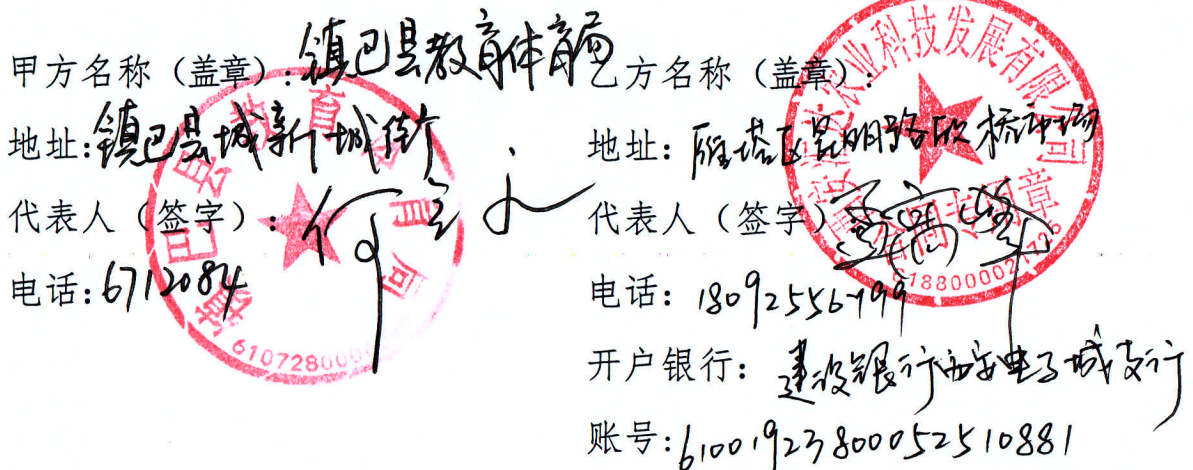 甲方名称（盖章）：镇巴县教育体育局
地址：镇巴县城新城街
代表人（签字）：何
电话：6712084
镇巴县教育体育局
6107280
乙方名称（盖章）：
地址：雁塔区昆明路欣桥市场
代表人（签字）
电话：18092556799
开户银行：建设银行西安电子城支行
账号：61001923800052510881
农业科技发展有限公司
合同专用章
61880000